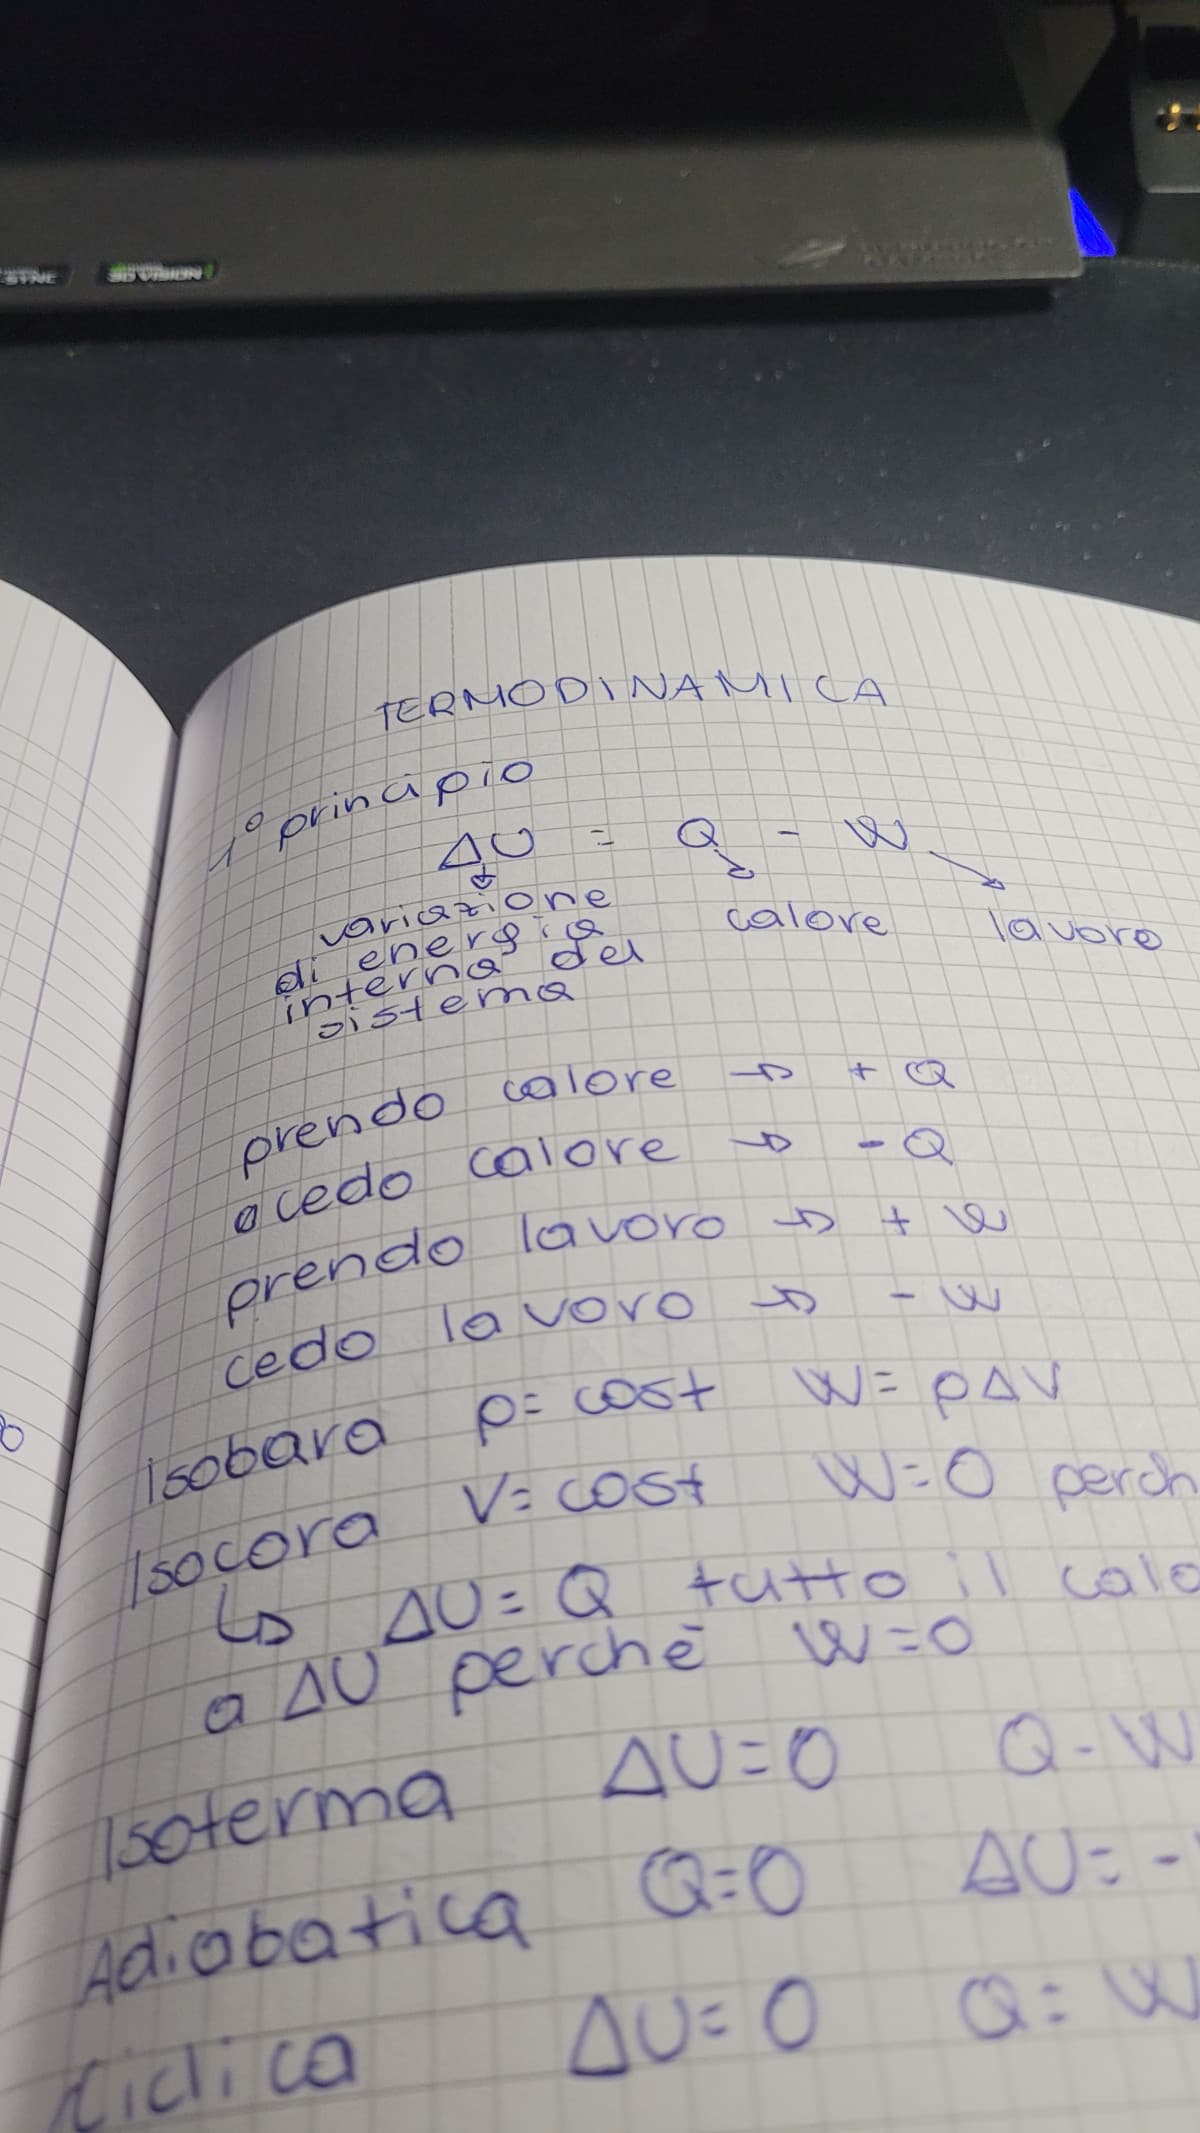 3D VISION
TERMODINAMICA
1° principio
ΔU = Q - W
variazione di energia interna del sistema
calore
lavoro
prendo calore → + Q
cedo calore → - Q
prendo lavoro → + W
cedo lavoro → - W
Isobara p= cost W= pΔV
Isocora V= cost W=0 perch
↳ ΔU= Q tutto il calo
a ΔU perchè W=0
Isoterma ΔU=0 Q-W
Adiabatica Q=0 ΔU= -
Ciclica ΔU=0 Q= W